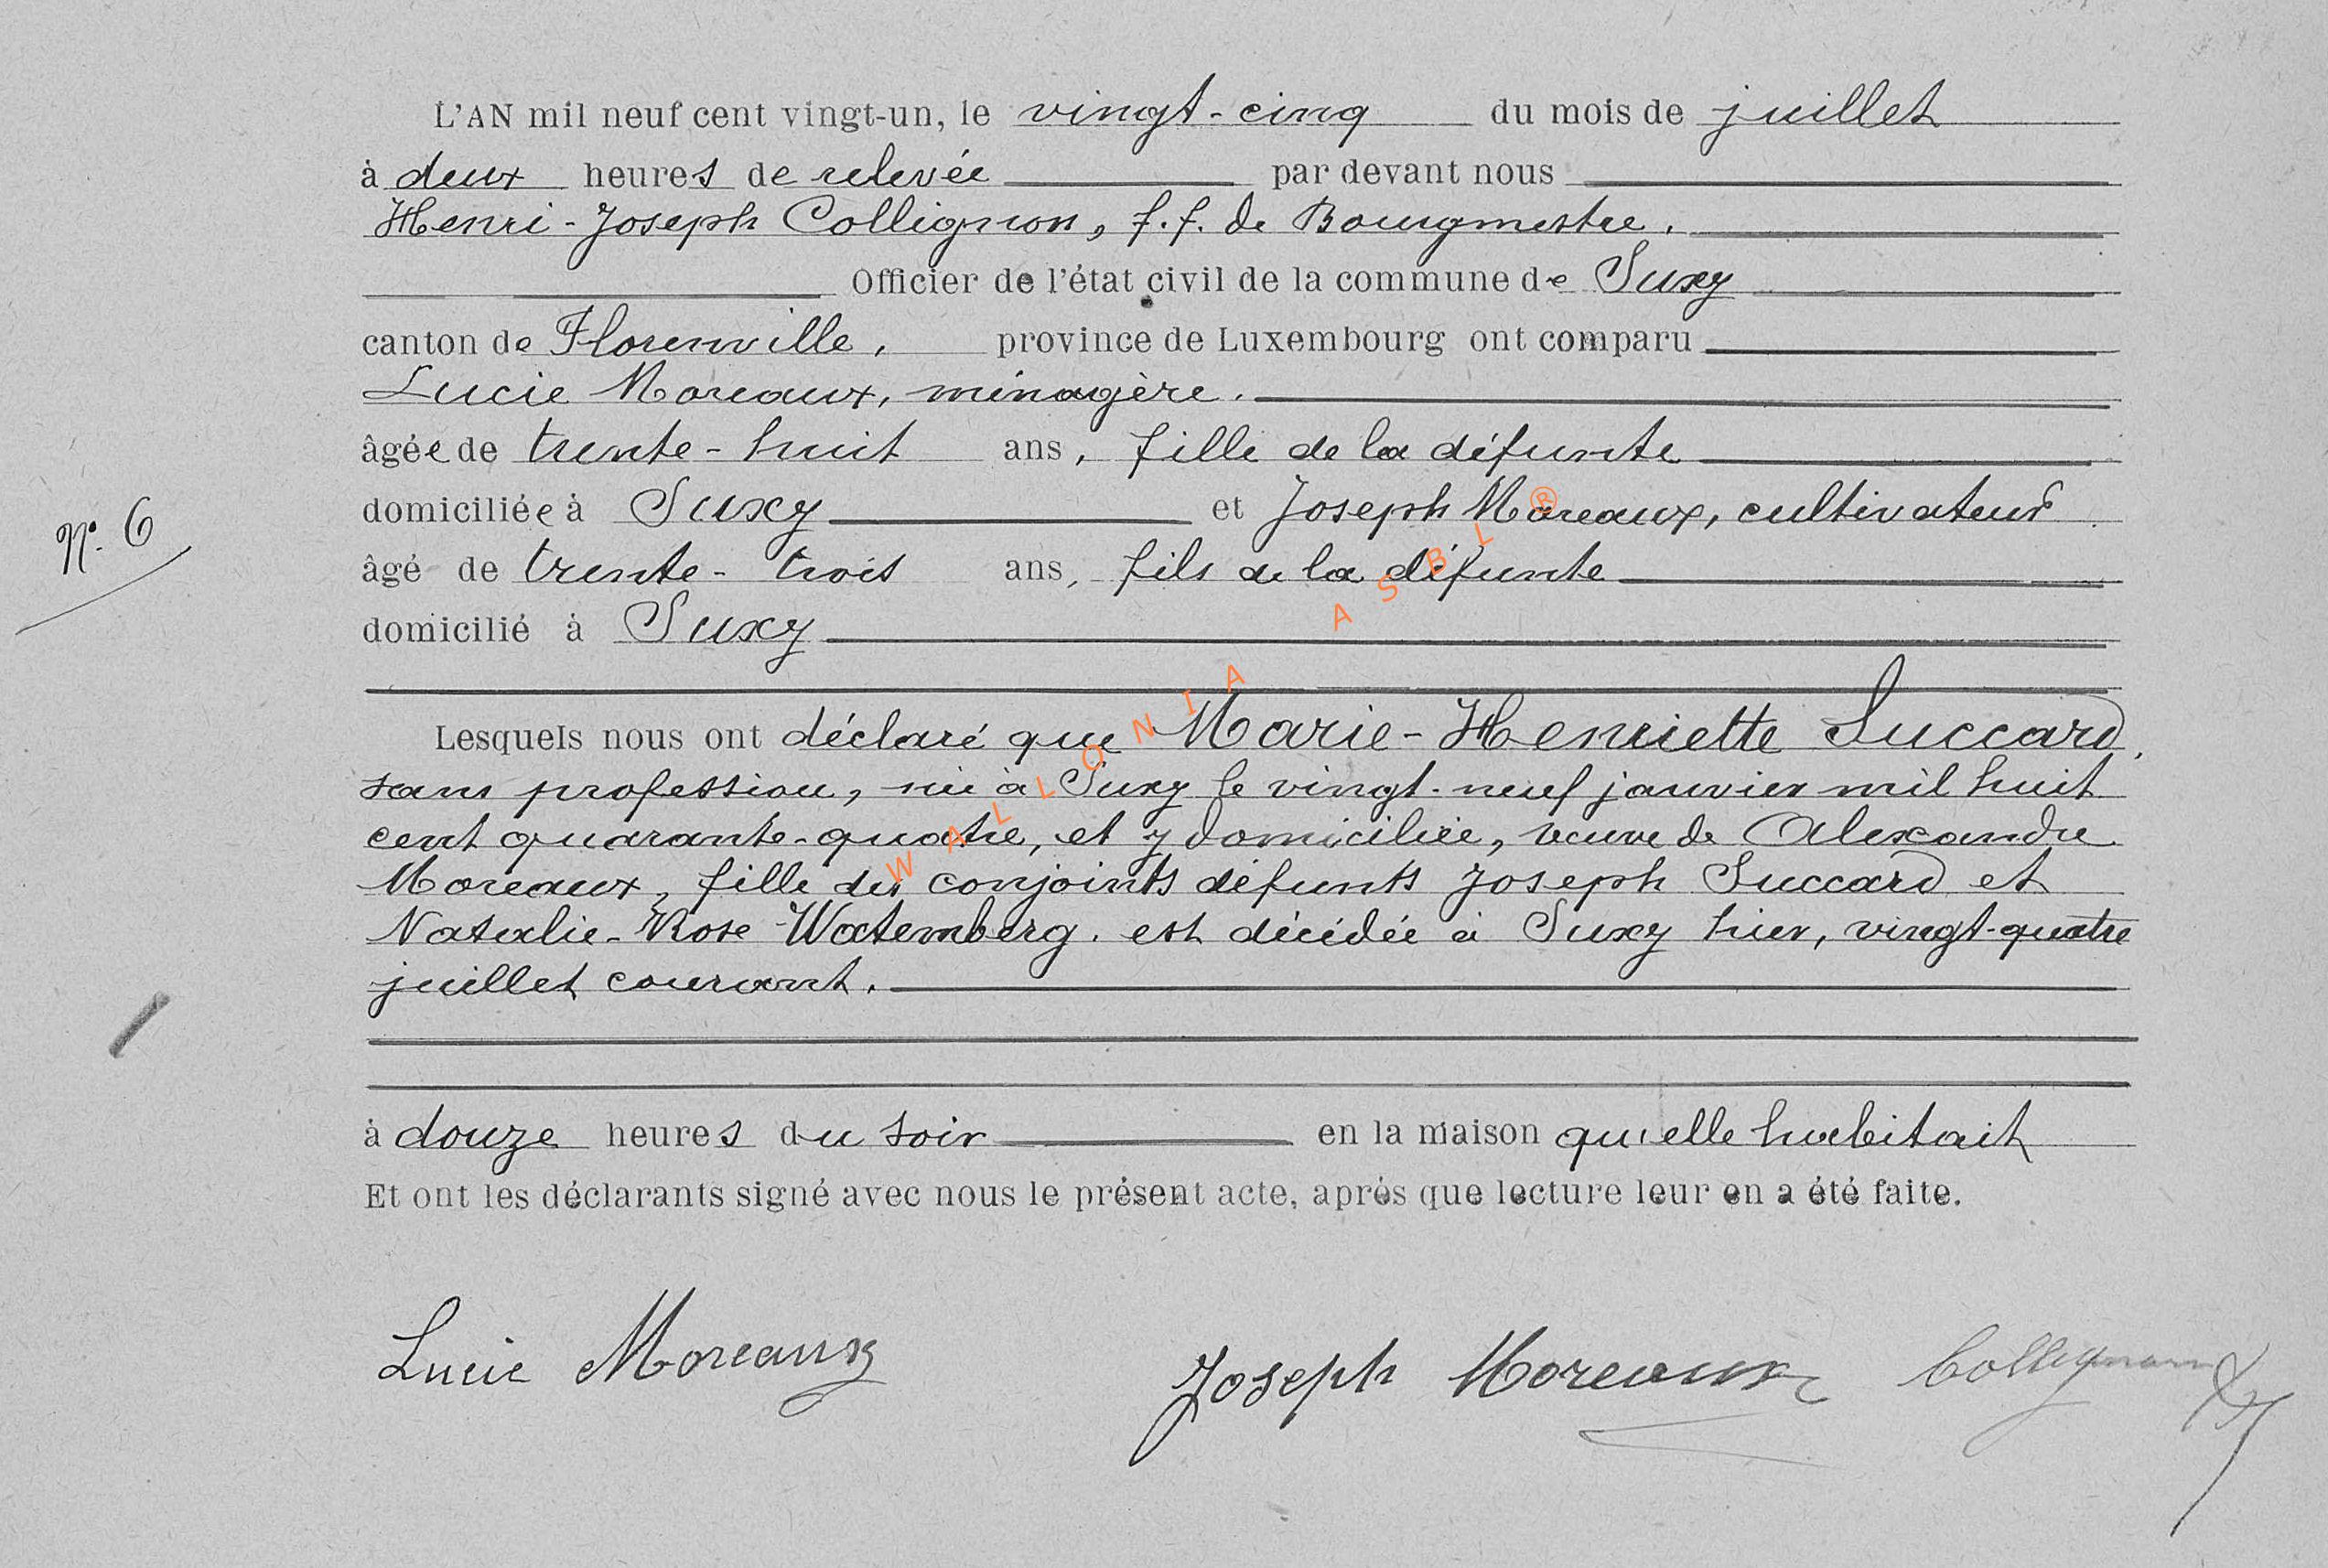 L'AN mil neuf cent vingt-un, le vingt-cinq du mois de juillet
à deux heures de relevée par devant nous
Henri-Joseph Collignon, f.f. de Bourgmestre.
Officier de l'état civil de la commune de Suxy
canton de Florenville, province de Luxembourg ont comparu
Lucie Moreaux, ménagère.
âgée de trente-huit ans, fille de la défunte
domiciliée à Suxy et Joseph Moreaux, cultivateur
N° 6
âgé de trente-trois ans, fils de la défunte
domicilié à Suxy
Lesquels nous ont déclaré que Marie-Henriette Succard,
sans profession, née à Suxy le vingt-neuf janvier mil huit
cent quarante-quatre, et y domiciliée, veuve de Alexandre
Moreaux, fille des conjoints défunts Joseph Succard et
Natalie-Rose Watemberg. est décédée à Suxy hier, vingt-quatre
juillet courant.
à douze heures du soir en la maison qu'elle habitait
Et ont les déclarants signé avec nous le présent acte, après que lecture leur en a été faite.
Lucie Moreaux Joseph Moreaux Collignon
WALLONIA ASBL ®